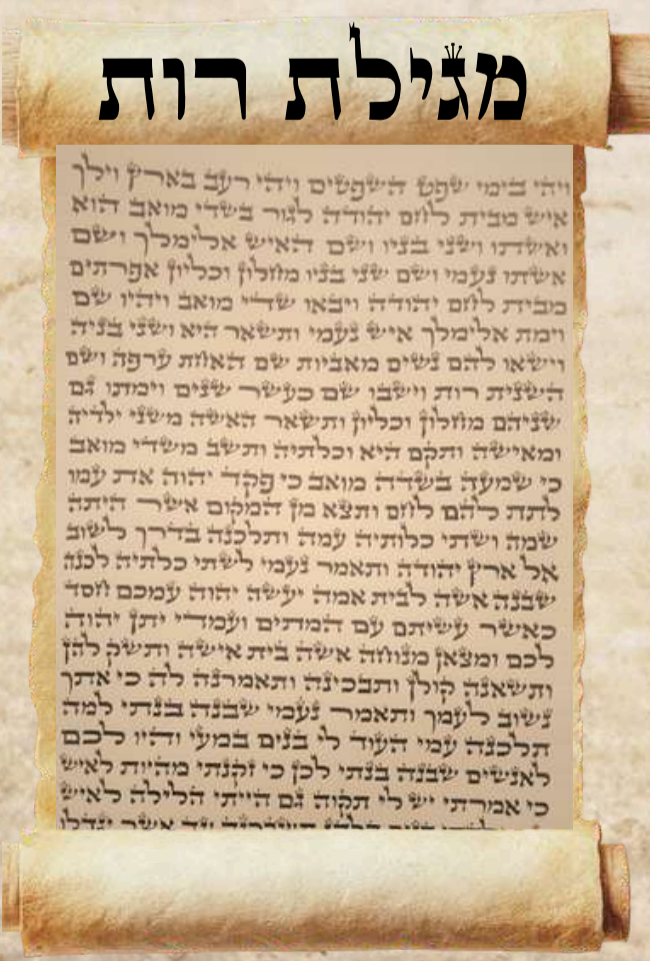 מגילת רות
ויהי בימי שפט השפטים ויהי רעב בארץ וילך
איש מבית לחם יהודה לגור בשדי מואב הוא
ואשתו ושני בניו ושם האיש אלימלך ושם
אשתו נעמי ושם שני בניו מחלון וכליון אפרתים
מבית לחם יהודה ויבאו שדי מואב ויהיו שם
וימת אלימלך איש נעמי ותשאר היא ושני בניה
וישאו להם נשים מאביות שם האחת ערפה ושם
השנית רות וישבו שם כעשר שנים וימתו גם
שניהם מחלון וכליון ותשאר האשה משני ילדיה
ומאישה ותקם היא וכלתיה ותשב משדי מואב
כי שמעה בשדה מואב כי פקד יהוה את עמו
לתת להם לחם ותצא מן המקום אשר היתה
שמה ושתי כלותיה עמה ותלכנה בדרך לשוב
אל ארץ יהודה ותאמר נעמי לשתי כלתיה לכנה
שבנה אשה לבית אמה יעשה יהוה עמכם חסד
כאשר עשיתם עם המתים ועמדי יתן יהוה
לכם ומצאן מנוחה אשה בית אישה ותשק להן
ותשאנה קולן ותבכינה ותאמרנה לה כי אתך
נשוב לעמך ותאמר נעמי שבנה בנתי למה
תלכנה עמי העוד לי בנים במעי והיו לכם
לאנשים שבנה בנתי לכן כי זקנתי מהיות לאיש
כי אמרתי יש לי תקוה גם הייתי הלילה לאיש